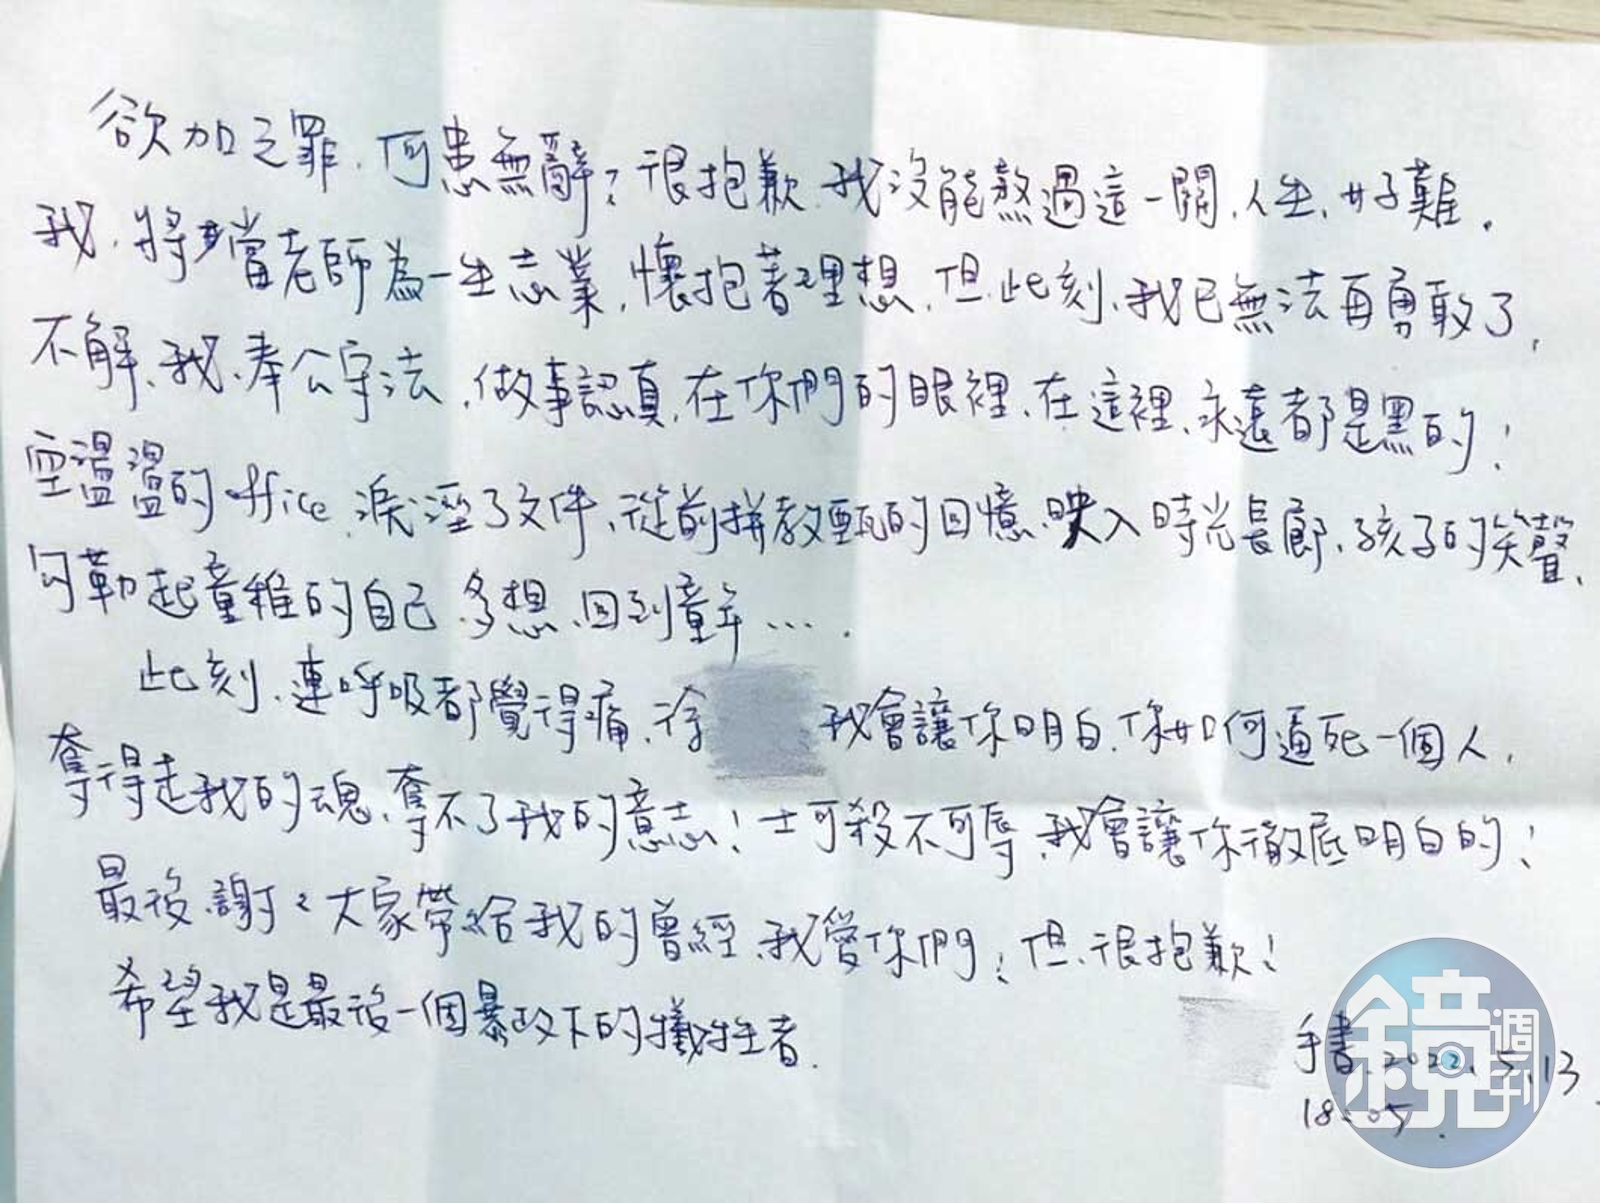 欲加之罪,何患無辭?很抱歉,我沒能熬過這一關,人生,好難。
我,將當老師為一生志業,懷抱著理想,但,此刻,我已無法再勇敢了,
不解、我、奉公守法,做事認真,在你們的眼裡,在這裡,永遠都是黑的!
空溫溫的office,淚溼了文件,從前拼教甄的回憶,映入時光長廊,孩子的笑聲,
勾勒起童稚的自己,多想,回到童年....
此刻,連呼吸都覺得痛,徐 我會讓你明白,你如何逼死一個人,
奪得走我的魂,奪不了我的意志!士可殺不可辱,我會讓你徹底明白的!
最後,謝ミ大家帶給我的曾經,我愛你們!但,很抱歉!
希望我是最後一個暴政下的犧牲者.
手書.2022.5.13
18:05.
鏡週刊